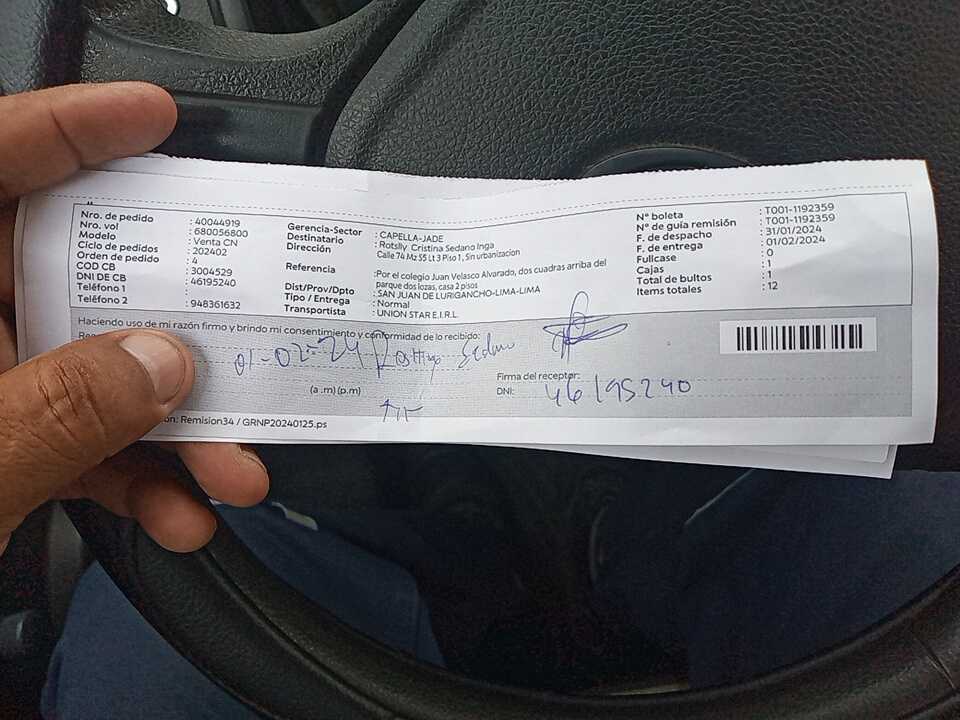 Nro. de pedido : 40044919
Nro. vol : 680056800
Modelo : Venta CN
Ciclo de pedidos : 202402
Orden de pedido : 4
COD CB : 3004529
DNI DE CB : 46195240
Teléfono 1 :
Teléfono 2 : 948361632
Gerencia-Sector : CAPELLA-JADE
Destinatario : Rotslly Cristina Sedano Inga
Dirección Calle 74 Mz S5 Lt 3 Piso 1, Sin urbanizacion
Referencia : Por el colegio Juan Velasco Alvarado, dos cuadras arriba del
parque dos lozas, casa 2 pisos
Dist/Prov/Dpto : SAN JUAN DE LURIGANCHO-LIMA-LIMA
Tipo / Entrega : Normal
Transportista : UNION STAR E.I.R.L.
N° boleta : T001-1192359
N° de guía remisión : T001-1192359
F. de despacho : 31/01/2024
F. de entrega : 01/02/2024
Fullcase : 0
Cajas : 1
Total de bultos : 1
Items totales : 12
Haciendo uso de mi razón firmo y brindo mi consentimiento y conformidad de lo recibido:
01-02-24 Sedano
Firma del receptor:
(a .m) (p.m)
DNI: 46195240
: Remision34 / GRNP20240125.ps